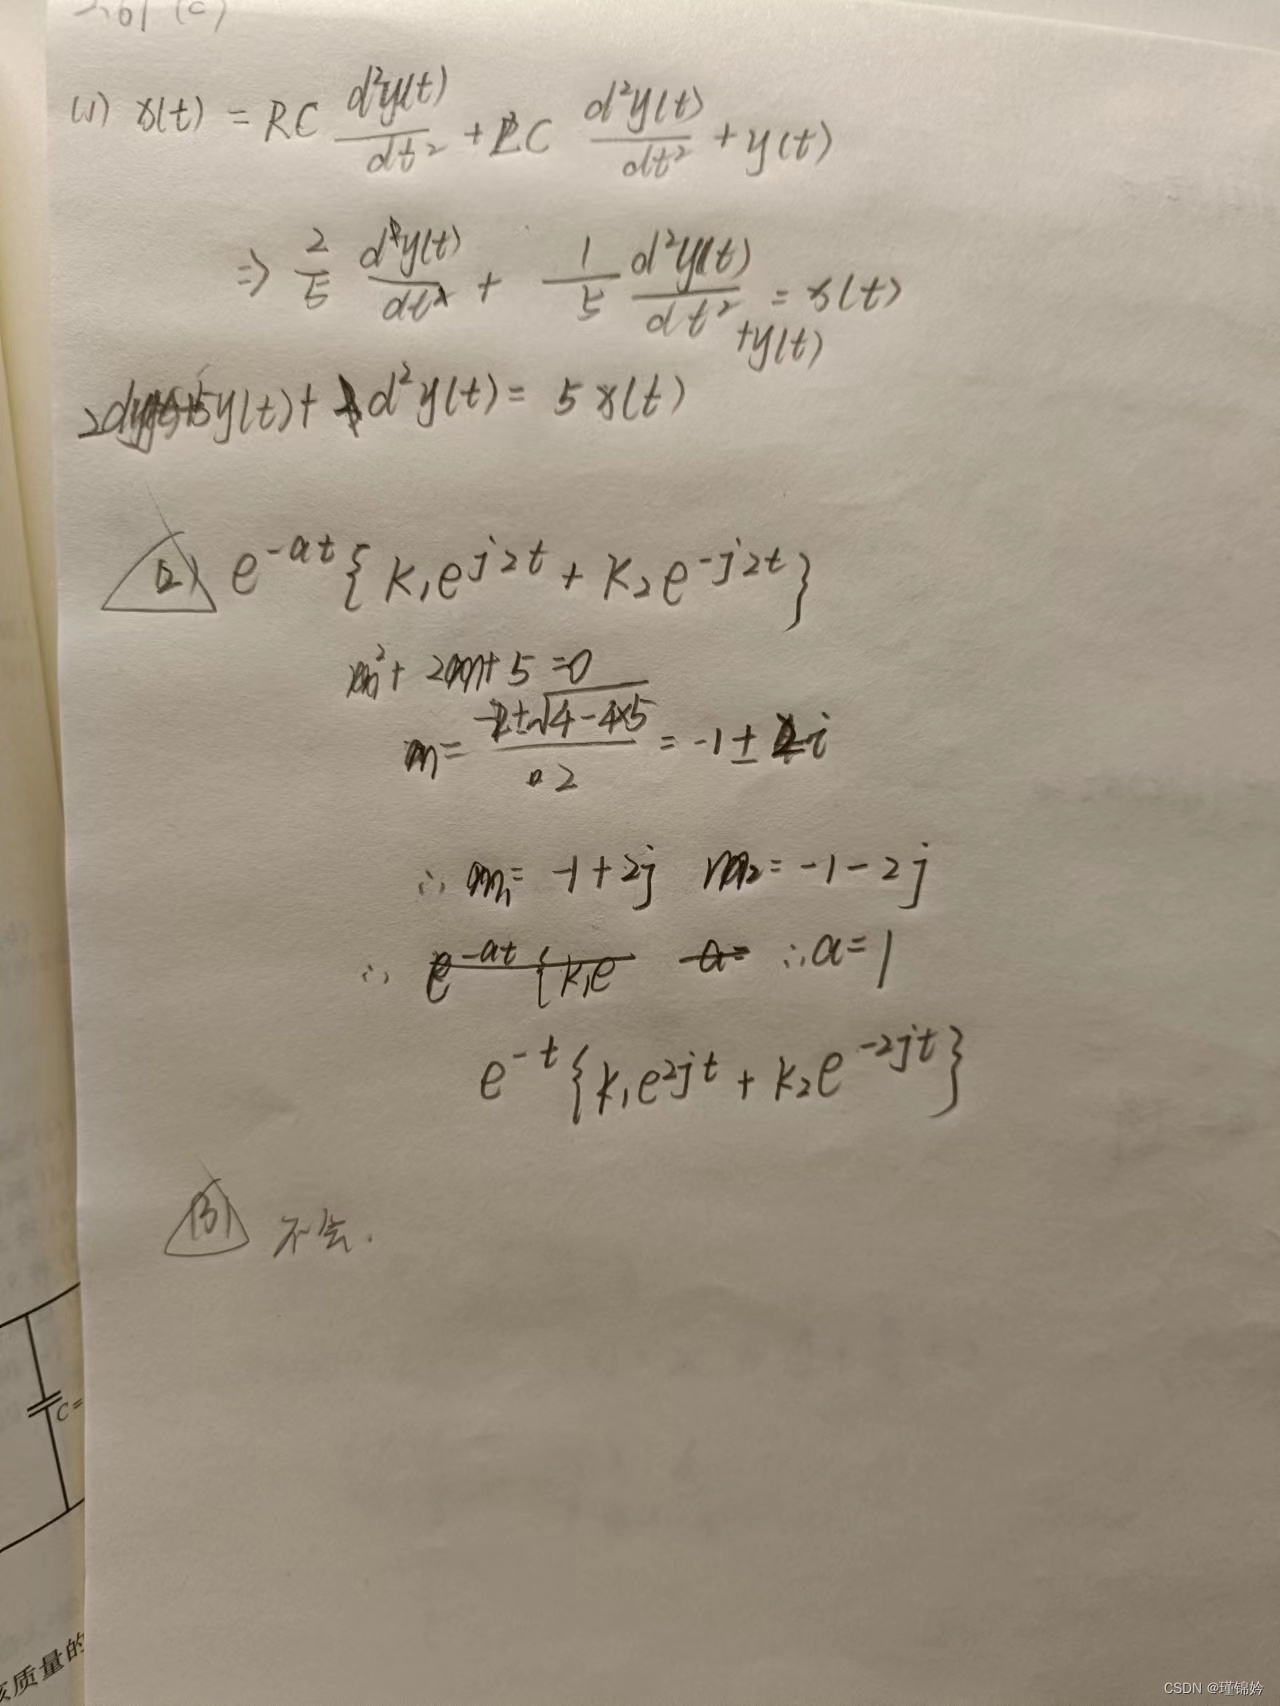 2.61 (c)
(1) x(t) = RC d²y(t)/dt² + LC d²y(t)/dt² + y(t)
⇒ 2/5 dy(t)/dt + 1/5 d²y(t)/dt² + y(t) = x(t)
5y(t) + d²y(t) = 5x(t)
(2) e^{-at}{k₁e^{j2t} + k₂e^{-j2t}}
m² + 2m + 5 = 0
m = (-2±√(4-4×5))/2 = -1 ± 2i
∴ m₁ = -1+2j m₂ = -1-2j
∴ e^{-at}{k₁e a= ∴a=1
e^{-t}{k₁e^{2jt} + k₂e^{-2jt}}
(3) 不会.
C=
该质量的
CSDN @瑾锦妗